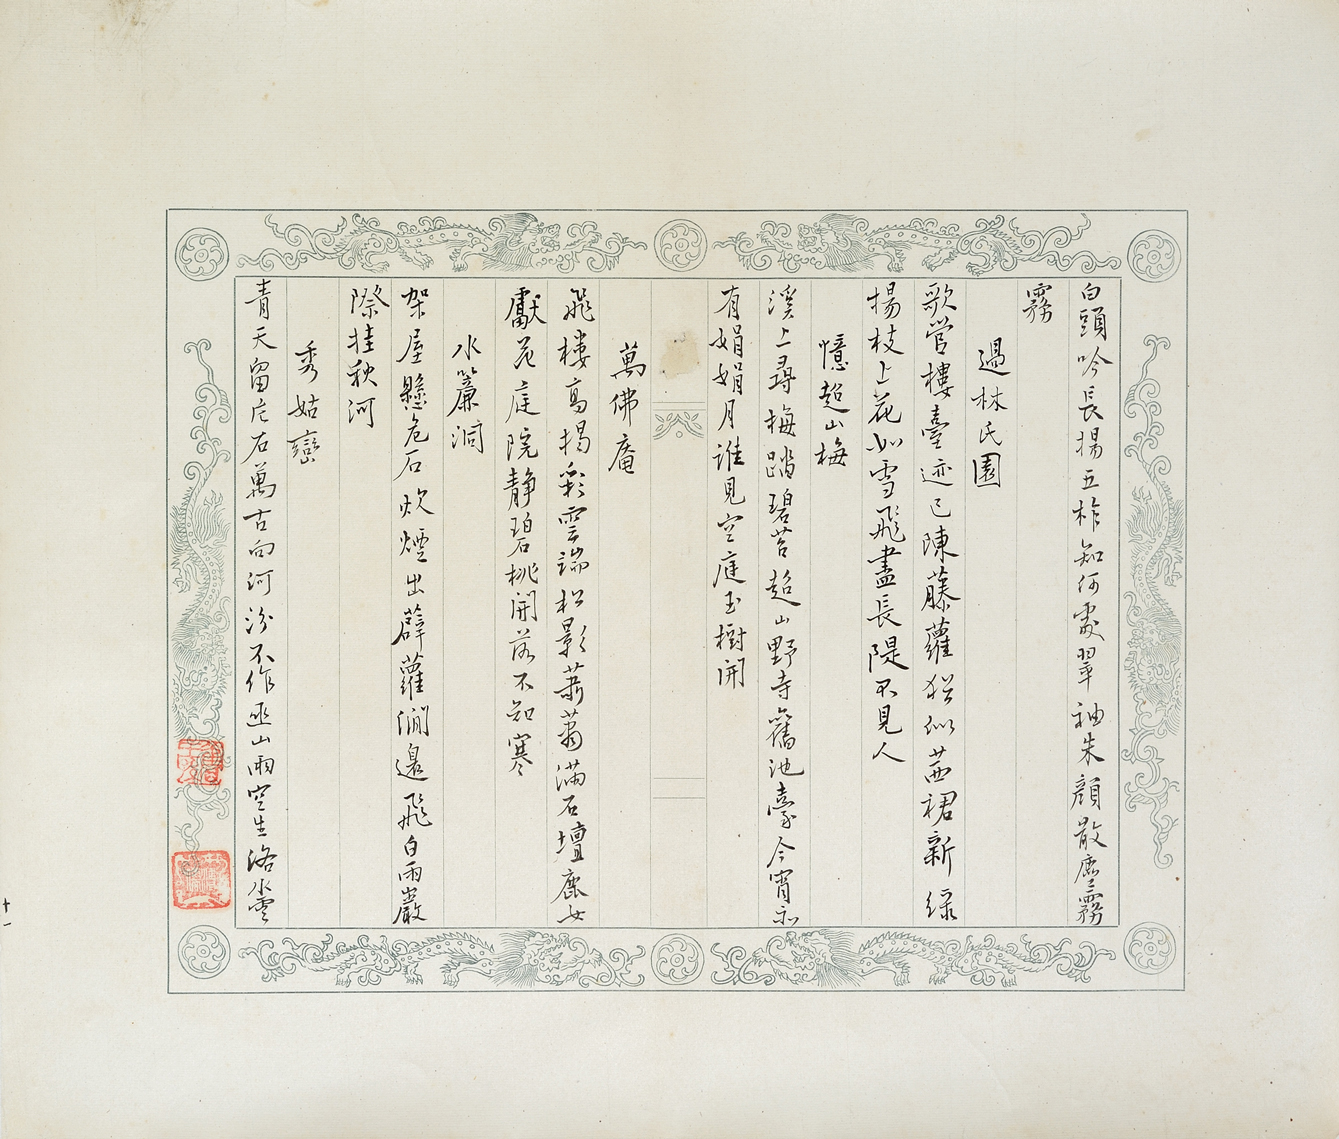 白頭吟長揚五柞知何處翠袖朱顏散塵霧
霧
過林氏園
歌管樓臺迹已陳藤蘿猶似茜裙新綠
揚枝上花如雪飛盡長隄不見人
憶超山梅
溪上尋梅踏碧苔超山野寺舊池臺今宵亦
有娟娟月誰見空庭玉樹開
萬佛庵
飛樓高揭彩雲端松影蕭蕭滿石壇鹿女
獻花庭院靜碧桃開落不知寒
水簾洞
架屋懸危石炊煙出薜蘿澗邊飛白雨巖
際挂秋河
秀姑巒
青天留片石萬古向河汾不作巫山雨空生洛水雲
十一